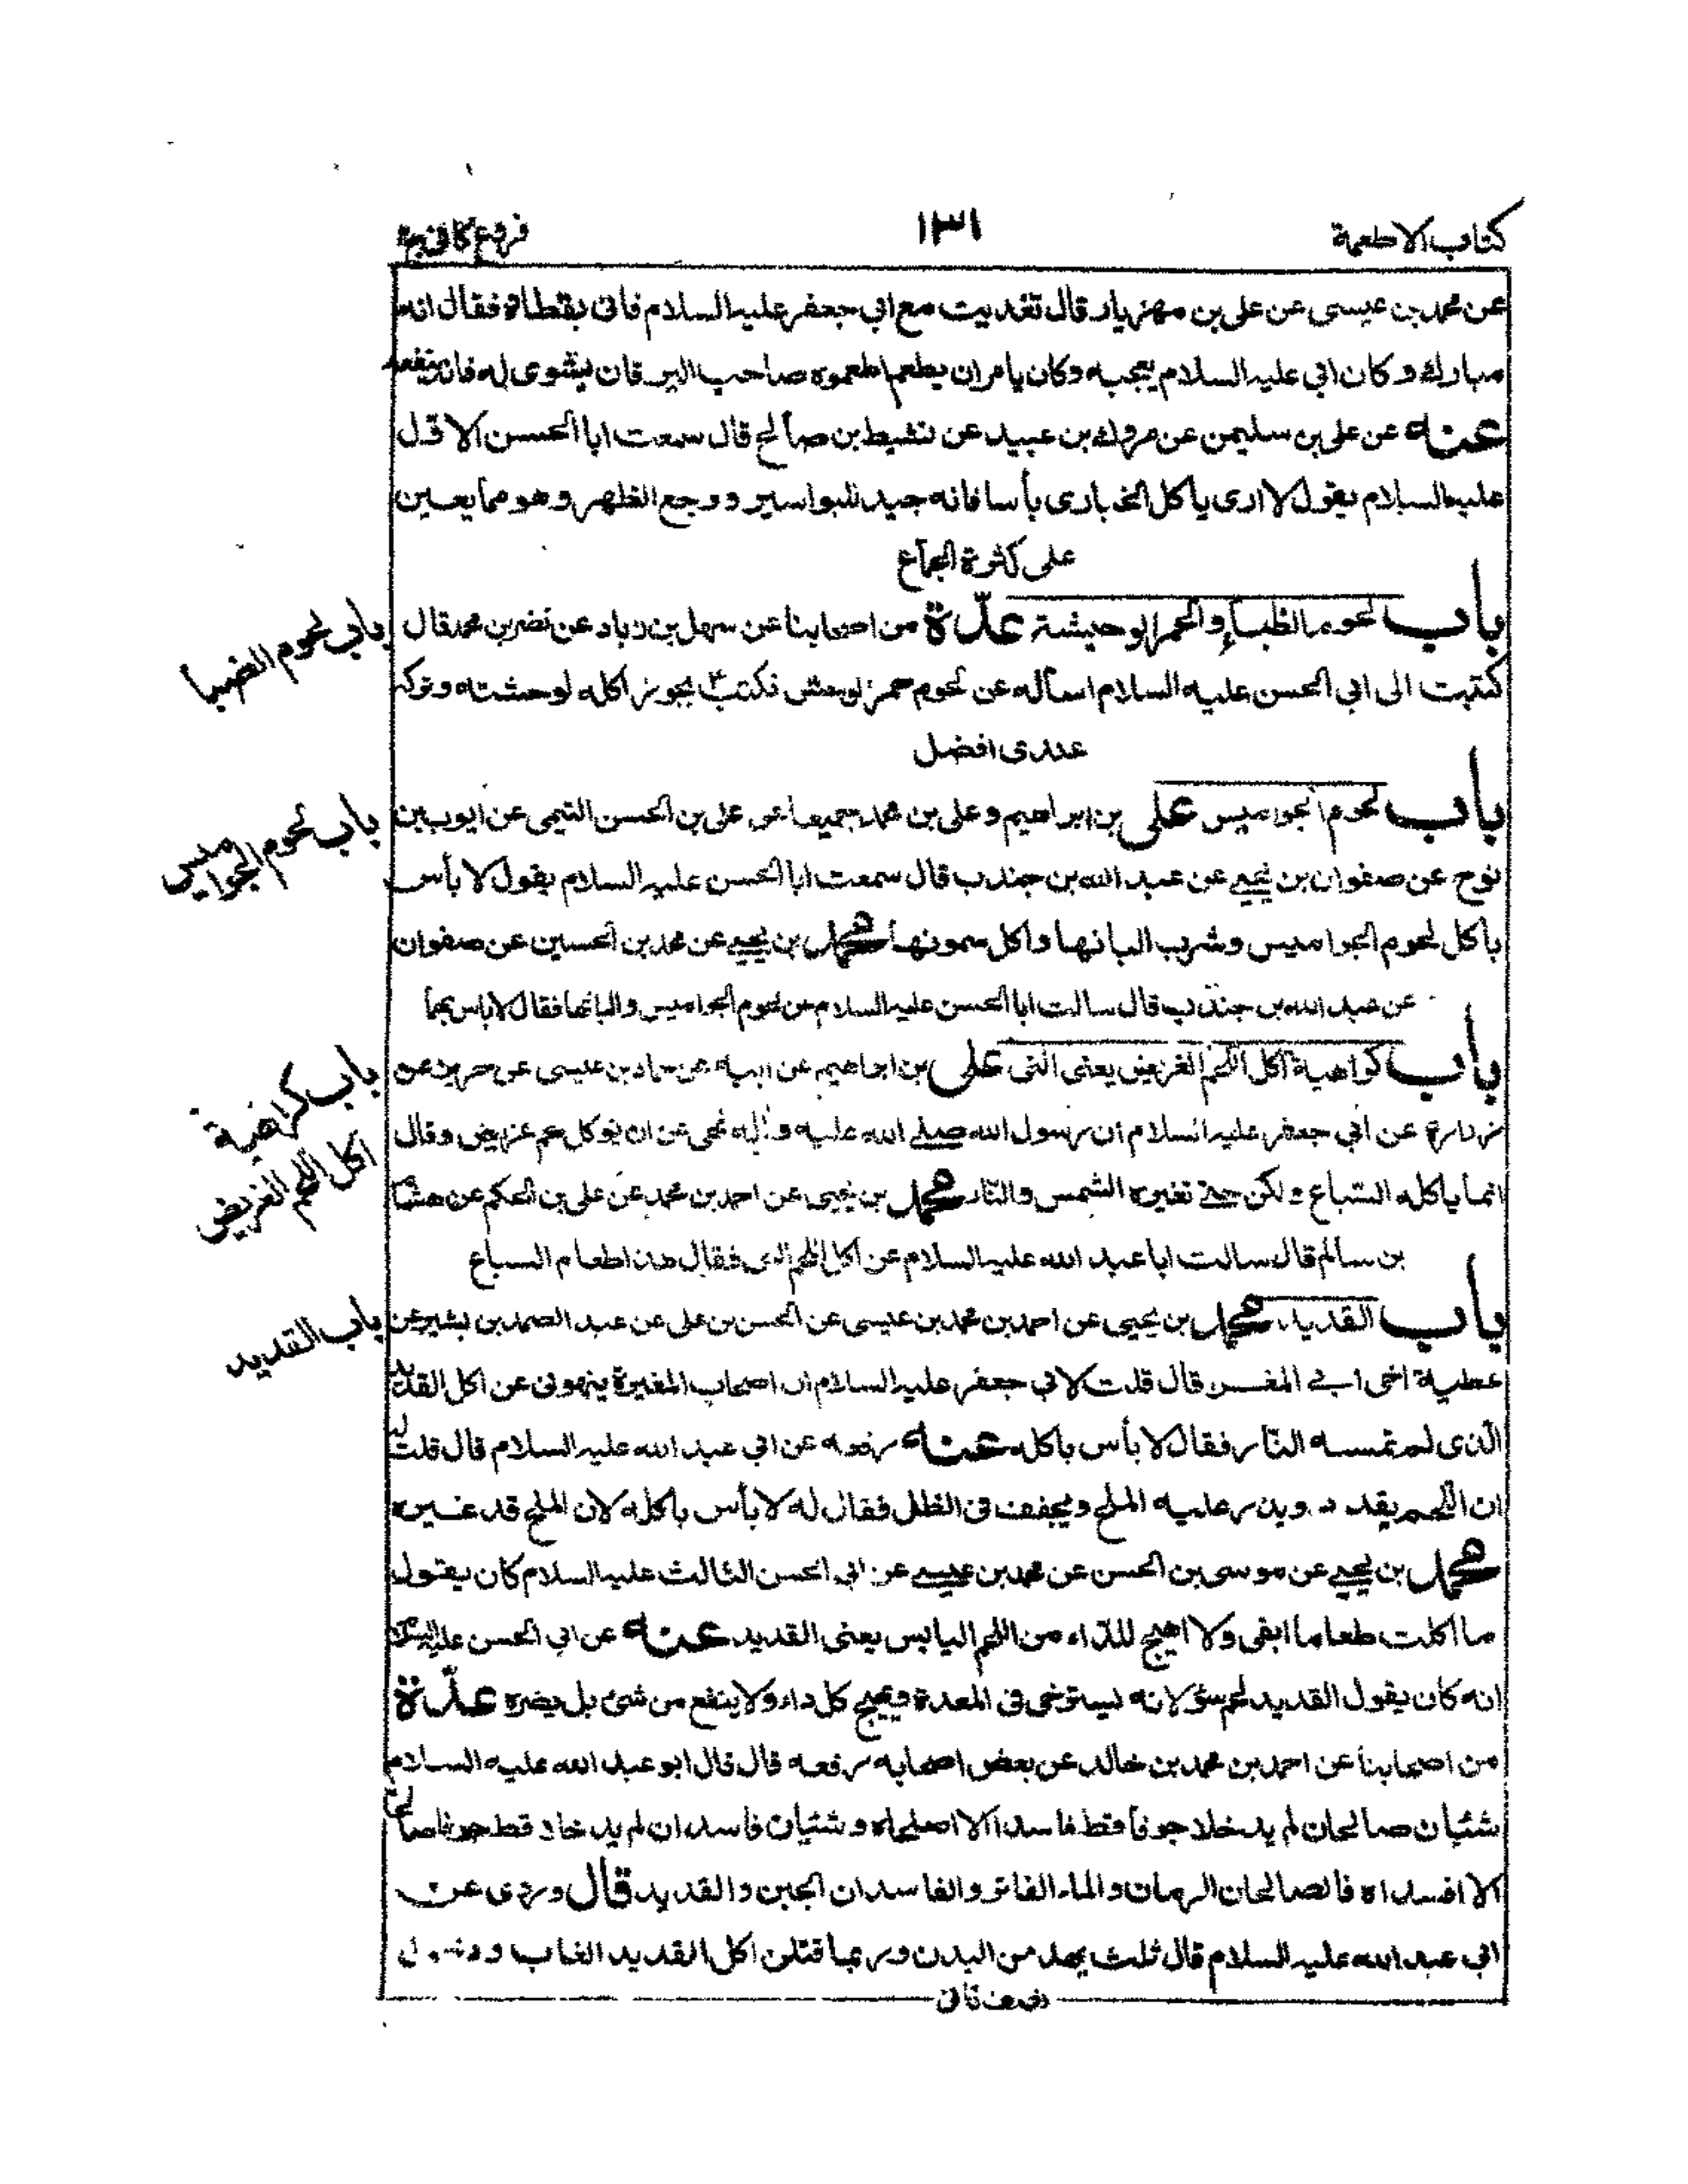 كتاب الاطعمة
١٣١
فروع كافى ج٢
عن محمد بن عيسى عن على بن مهزيار قال تغديت مع ابي جعفر عليه السلام فاتى بقطاة فقال انه
مبارك و كان ابي عليه السلام يعجبه وكان يامر ان يطعم اطعموه صاحب اليرقان يشوى له فانه ينفعه
عنه عن على بن سليمن عن مروك بن عبيد عن نشيط بن صالح قال سمعت ابا الحسن الاول
عليه السلام يقول لا ارى باكل الحبارى بأسا فانه جيد للبواسير و وجع الظهر وهو مما يعين
على كثرة الجماع
باب لحوم الظباء والحمر الوحيشة عدّة من اصحابنا عن سهل بن زياد عن نضر بن محمد قال
كتبت الى ابي الحسن عليه السلام اسأله عن لحوم حمر الوحش فكتب يجوز اكله لوحشته وتركه
عندى افضل
باب لحوم الجواميس على بن ابراهيم وعلى بن محمد جميعا عن على بن الحسن التيمى عن ايوب بن
نوح عن صفوان بن يحيى عن عبد الله بن جندب قال سمعت ابا الحسن عليه السلام يقول لا بأس
باكل لحوم الجواميس وشرب البانها واكل سمونها محمد بن يحيى عن محمد بن الحسين عن صفوان
عن عبد الله بن جندب قال سالت ابا الحسن عليه السلام عن لحوم الجواميس والبانها فقال لاباس بها
باب كراهية اكل اللحم الغريض يعنى النى على بن ابراهيم عن ابيه عن حماد بن عيسى عن حريز عن
زرارة عن ابي جعفر عليه السلام ان رسول الله صلى الله عليه واله نهى عن ان يوكل لحم غريض وقال
انما ياكله السّباع ولكن حتى تغيره الشمس والنّار محمد بن يحيى عن احمد بن محمد عن على بن الحكم عن هشام
بن سالم قال سالت ابا عبد الله عليه السلام عن اكل اللحم النى فقال هذا طعام السباع
باب القديد محمد بن يحيى عن احمد بن محمد بن عيسى عن الحسن بن على عن عبد الصمد بن بشير عن
عطية اخى ابى المغر قال قلت لابي جعفر عليه السلام ان اصحاب المغيرة ينهونى عن اكل القديد
الّذى لم تمسه النّار فقال لا بأس باكله عنه رفعه عن ابي عبد الله عليه السلام قال قلت له
ان اللّحم يقدد ويذر عليه الملح ويجفف فى الظل فقال له لا بأس باكله لان الملح قد غيره
محمد بن يحيى عن موسى بن الحسن عن محمد بن عيسى عن ابى الحسن الثالث عليه السلام كان يقول
ما اكلت طعاما ابقى ولا اهيج للدّاء من اللحم اليابس يعنى القديد عنه عن ابي الحسن عليه السلام
انه كان يقول القديد لحم سوء لانه يسترخى فى المعدة ويهيج كل داء ولا ينفع من شئ بل يضره عدّة
من اصحابنا عن احمد بن محمد بن خالد عن بعض اصحابه رفعه قال قال ابو عبد الله عليه السلام
شيئان صالحان لم يدخلا جوفا قط فاسدا الا اصلحاه و شيئان فاسدان لم يدخلا قط جوفا صالحا
الا افسداه فالصالحان الرمان والماء الفاتر والفاسدان الجبن والقديد قال وروى عن
ابي عبد الله عليه السلام قال ثلث يهدمن البدن وربما قتلن اكل القديد الغاب ودخول
باب لحوم الضبا
باب لحوم الجواميس
باب كراهية
اكل اللحم الغريض
باب القديد